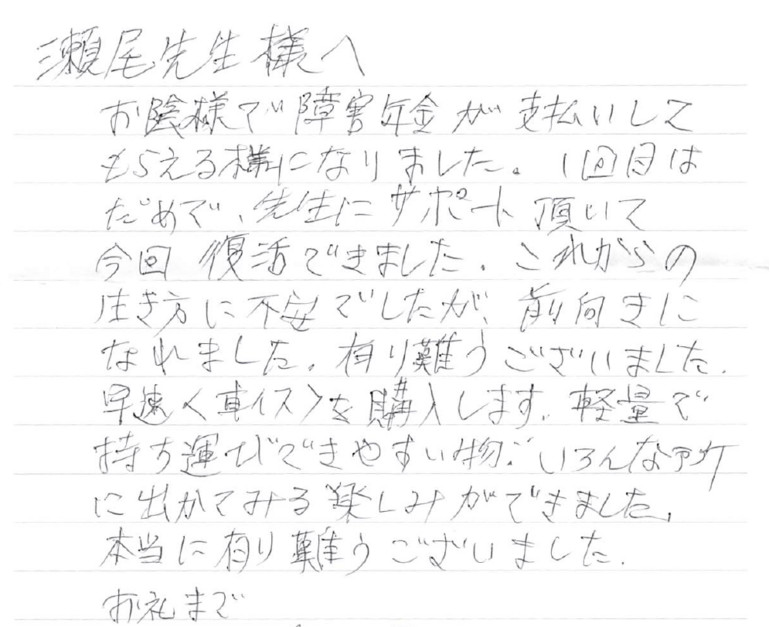 瀬尾先生様へ
お陰様で障害年金が支払いして
もらえる様になりました。1回目は
だめで、先生にサポート頂いて
今回復活できました。これからの
生き方に不安でしたが、前向きに
なれました。有り難うございました。
早速〈車イス〉を購入します。軽量で
持ち運びできやすい物。いろんな所
に出かてみる楽しみができました。
本当に有り難うございました。
お礼まで